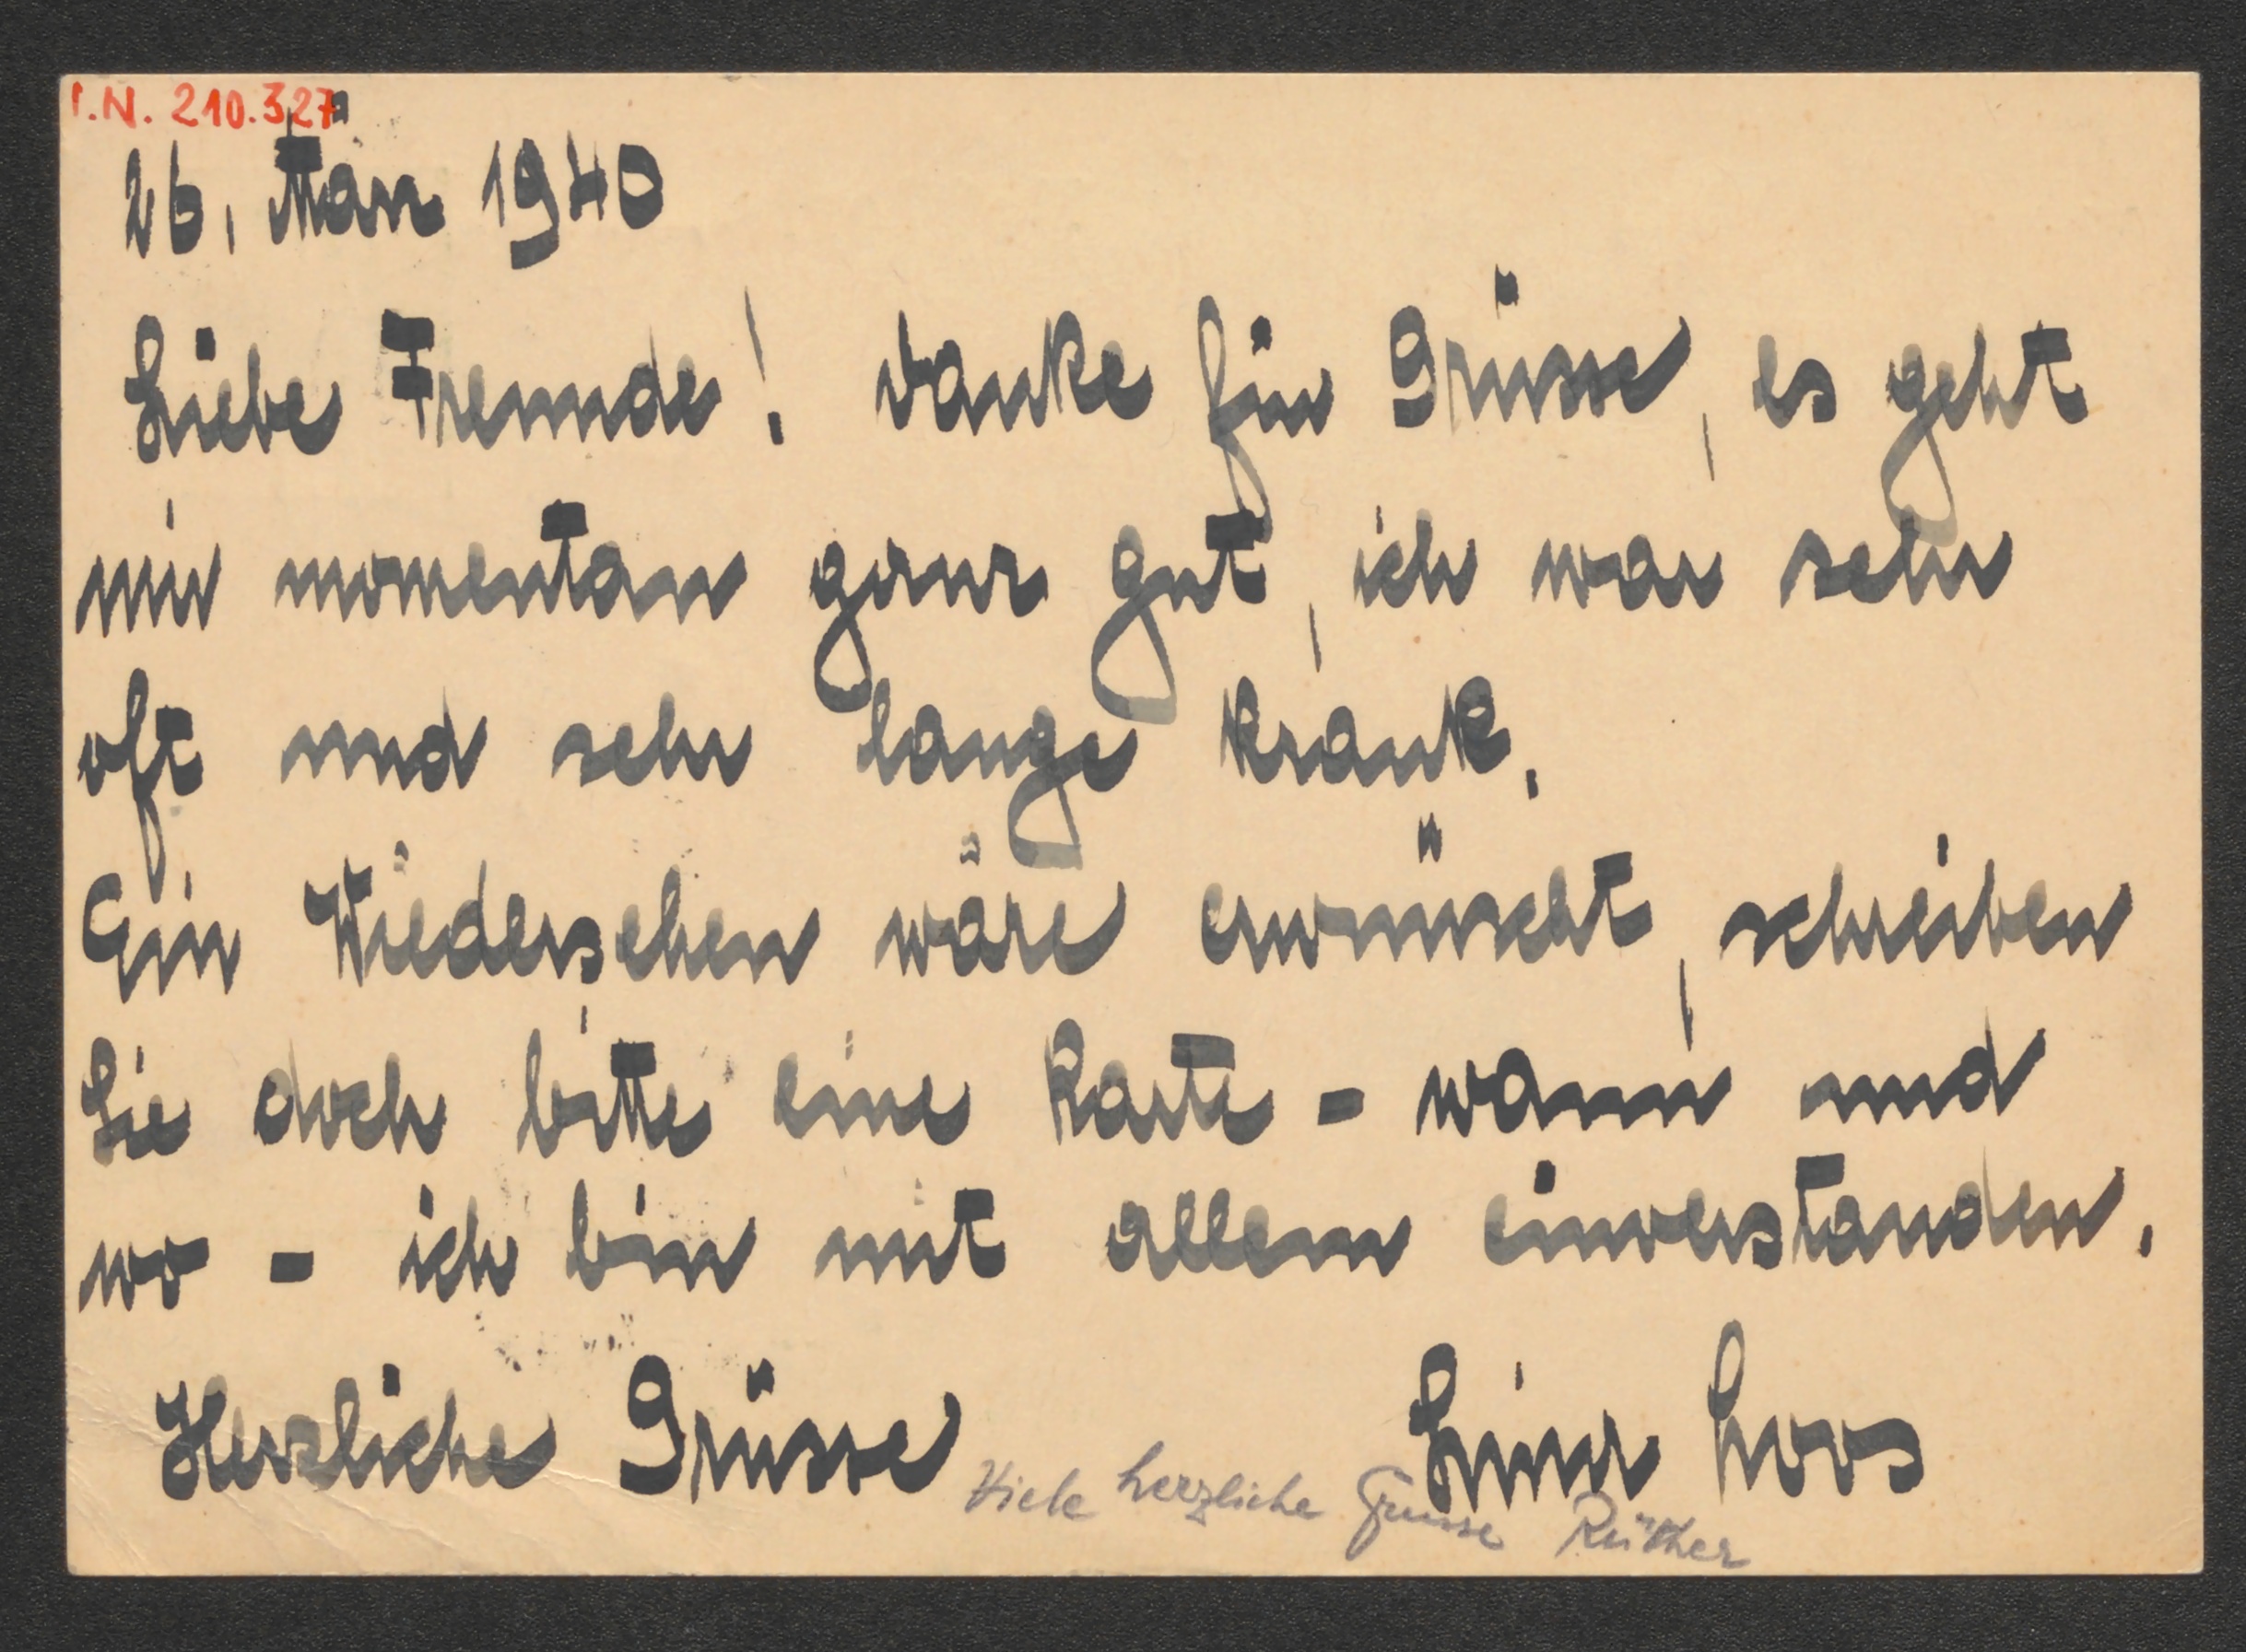 I.N. 210.327
26. März 1940
Liebe Freunde! danke für Grüsse, es geht
mir momentan ganz gut, ich war sehr
oft und sehr lange krank.
Ein Wiedersehen wäre erwünscht, schreiben
Sie doch bitte eine Karte - wann und
wo - ich bin mit allem einverstanden.
Herzliche Grüsse Lina Loos
Viele herzliche Grüsse Rüther